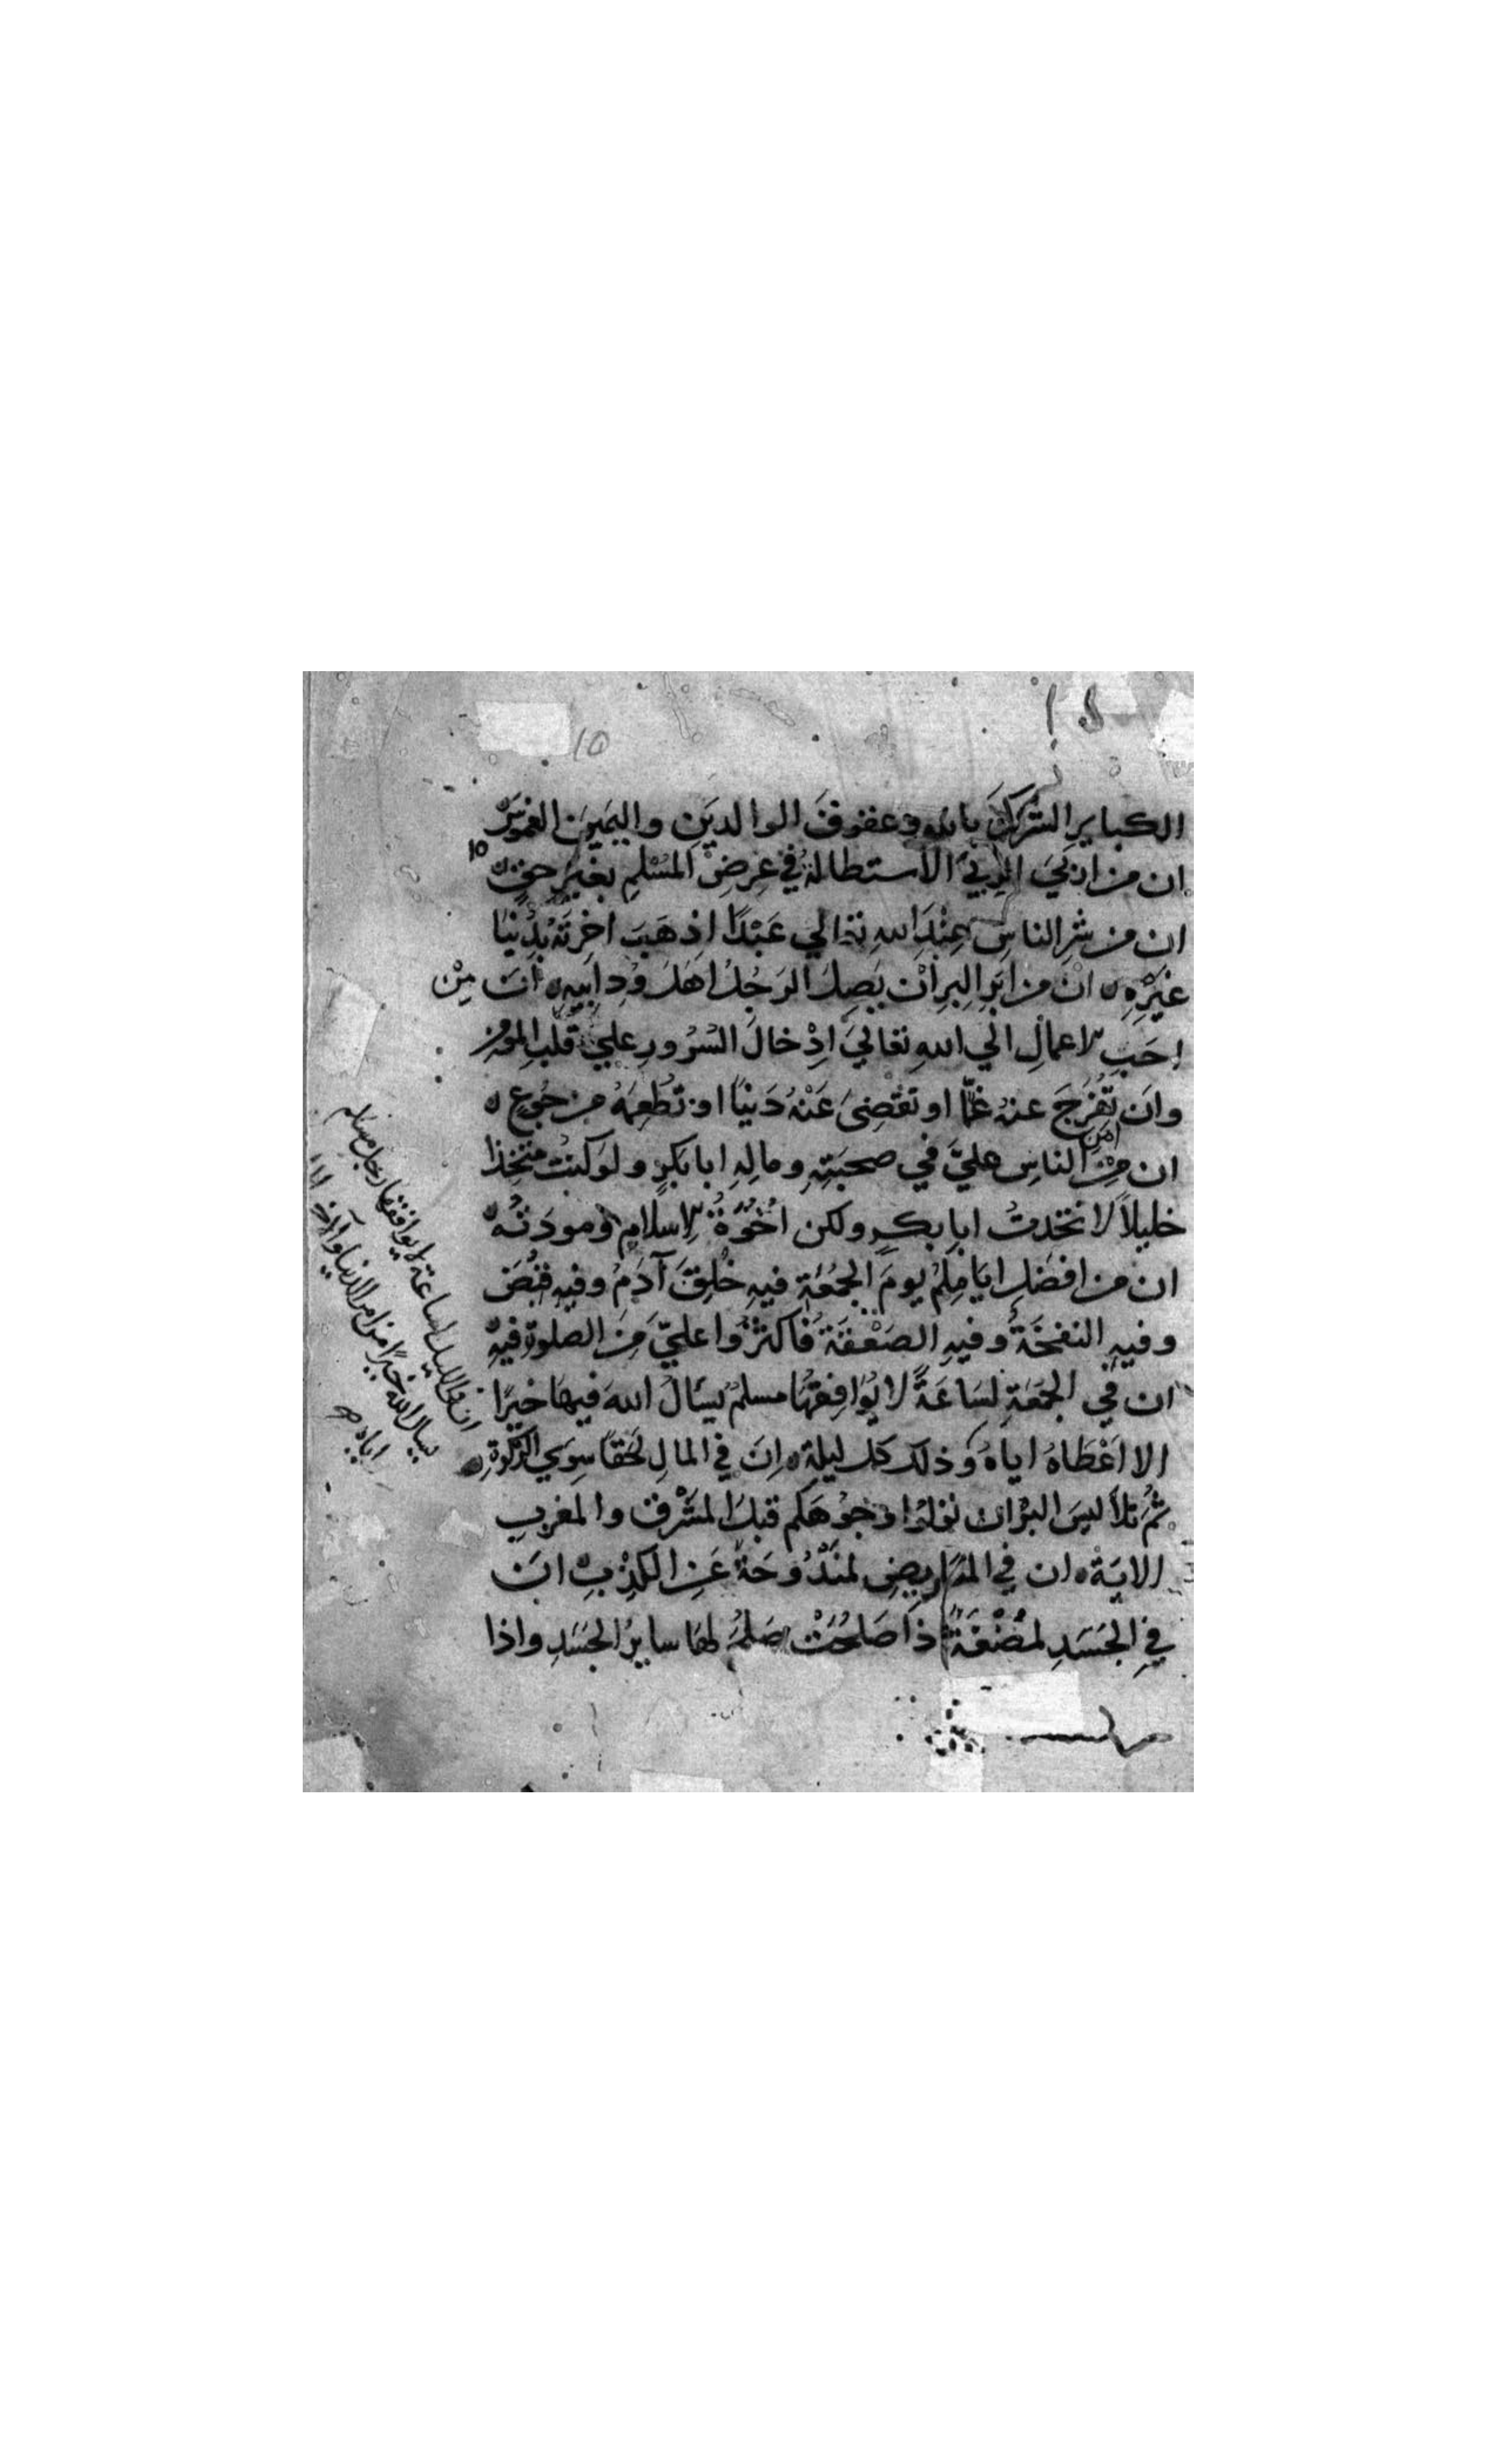 ١٥
10
الكباير الشرك بالله وعقوق الوالدين واليمين الغموس
ان من اربي الربي الاستطالة في عرض المسلم بغير حق
ان من شر الناس عند الله تعالي عبدًا اذهب اخرته بدنيا
غيره ان من ابر البر ان يصل الرجل اهل ود ابيه ان من
احب الاعمال الي الله تعالي ادخال السرور علي قلب المؤمن
وان تفرج عنه غمًّا او تقضي عنه دينًا او تطعمه من جوع
ان من امن الناس علي في صحبته وماله ابا بكر ولو كنت متخذا
خليلاً لاتخذت ابا بكر ولكن اخوة الاسلام ومودته
ان من افضل ايامكم يوم الجمعة فيه خلق آدم وفيه قبض
وفيه النفخة وفيه الصعقة فاكثروا علي من الصلوة فيه
ان في الجمعة لساعة لا يوافقها مسلم يسأل الله فيها خيرًا
الا اعطاه اياه وذلك كل ليلة ان في المال لحقًا سوي الزكوة
ثم تلا ليس البر ان تولوا وجوهكم قبل المشرق والمغرب
الاية ان في المعاريض لمندوحة عن الكذب ان
في الجسد لمضغة اذا صلحت صلح لها ساير الجسد واذا
ان في الليل لساعة لا يوافقها رجل مسلم
يسال الله خيرًا من امر الدنيا والآخرة الا
اياه صح